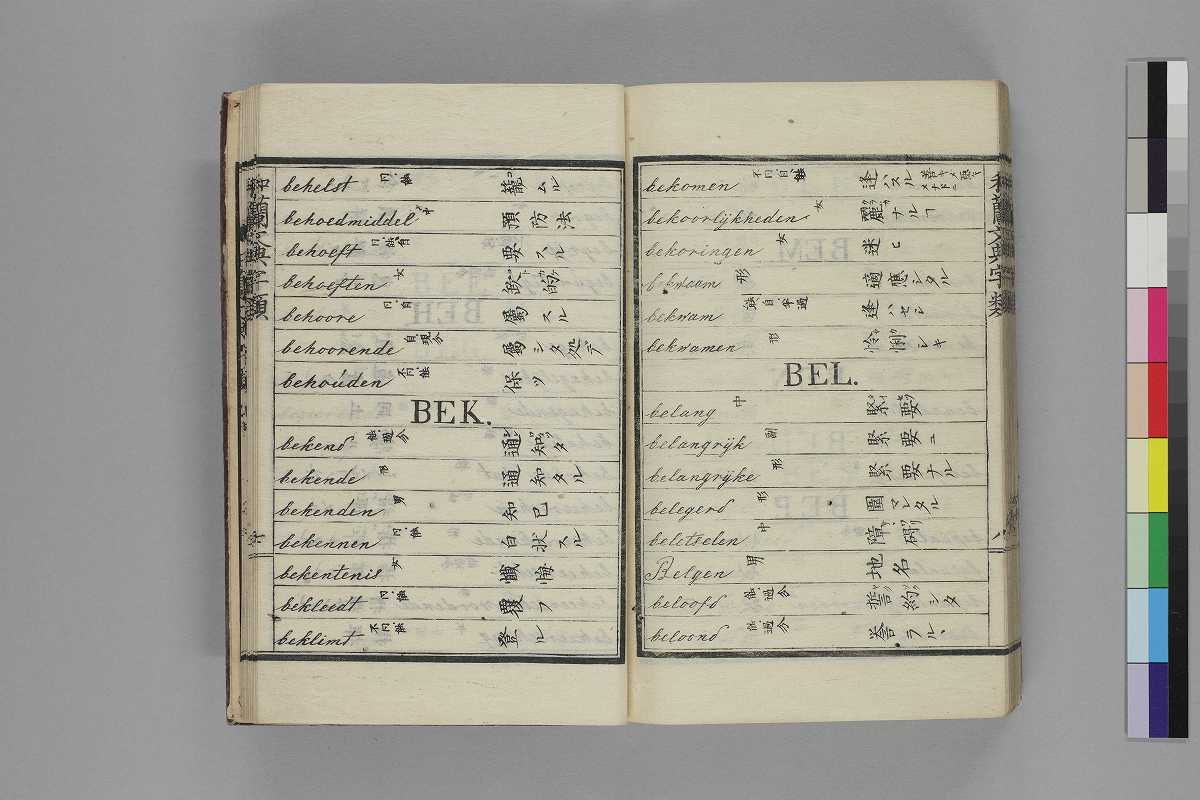 behelst 籠ムル
behoedmiddel 預防法
behoeft 要スル
behoeften 女 政的
behoore 属スル
behoorende 属シタ処デ
behouden 保ツ
BEK.
bekend 通知シタ
bekende 形 通知タル
bekenden 男 知己
bekennen 白状スル
bekentenis 女 懺悔
bekleedt 覆フ
beklimt 登ル
bekomen 逢ハスル
bekoorlijkheden 女 麗ナルヿ
bekoringen 女 迷ヒ
bekwaam 形 適應シタル
bekwam 逢ハセシ
bekwamen 形 怜悧シキ
BEL.
belang 中 緊要
belangrijk 副 緊要ニ
belangrijke 形 緊要ナル
belegerd 形 圍マレタル
beletselen 中 障碍
Belgen 男 地名
beloofd 誓約シタ
beloond 誉ラル、